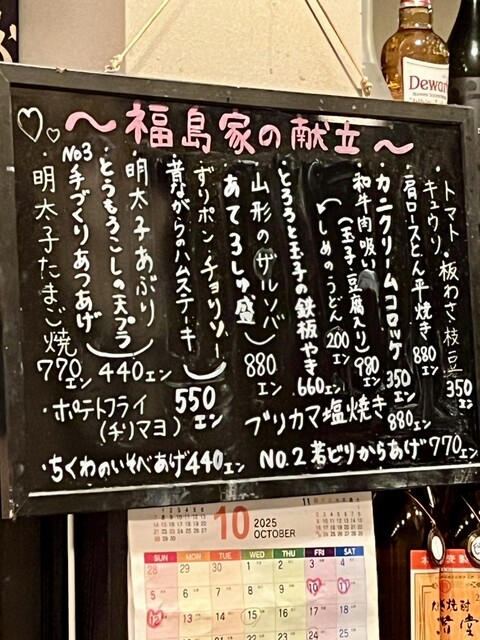 〜福島家の献立〜
トマト・板わさ・枝豆 350エン
キュウリ
・肩ロースとん平焼き 880エン
・カニクリームコロッケ 350エン
・和牛肉吸い (玉子・豆腐入り) 980エン
しめのうどん 200エン
・とろろと玉子の鉄板やき 660エン
・山形のザルソバ 880エン
あてろしゅ盛
・ずりポン・チョリソー 550エン
・昔ながらのハムステーキ
・明太子あぶり 440エン
・とうもろこしの天プラ
No3 手づくりあつあげ
・明太子たまご焼 770エン
・ポテトフライ (チリマヨ)
ブリカマ塩焼き 880エン
・ちくわのいそべあげ 440エン
No.2 若どりからあげ 770エン
Dewar's
10 2025 OCTOBER
11
SUN MON TUE WED THU FRI SAT
28 29 30 1 2 3 4
5 6 7 8 9 10 11
12 13 14 15 16 17 18